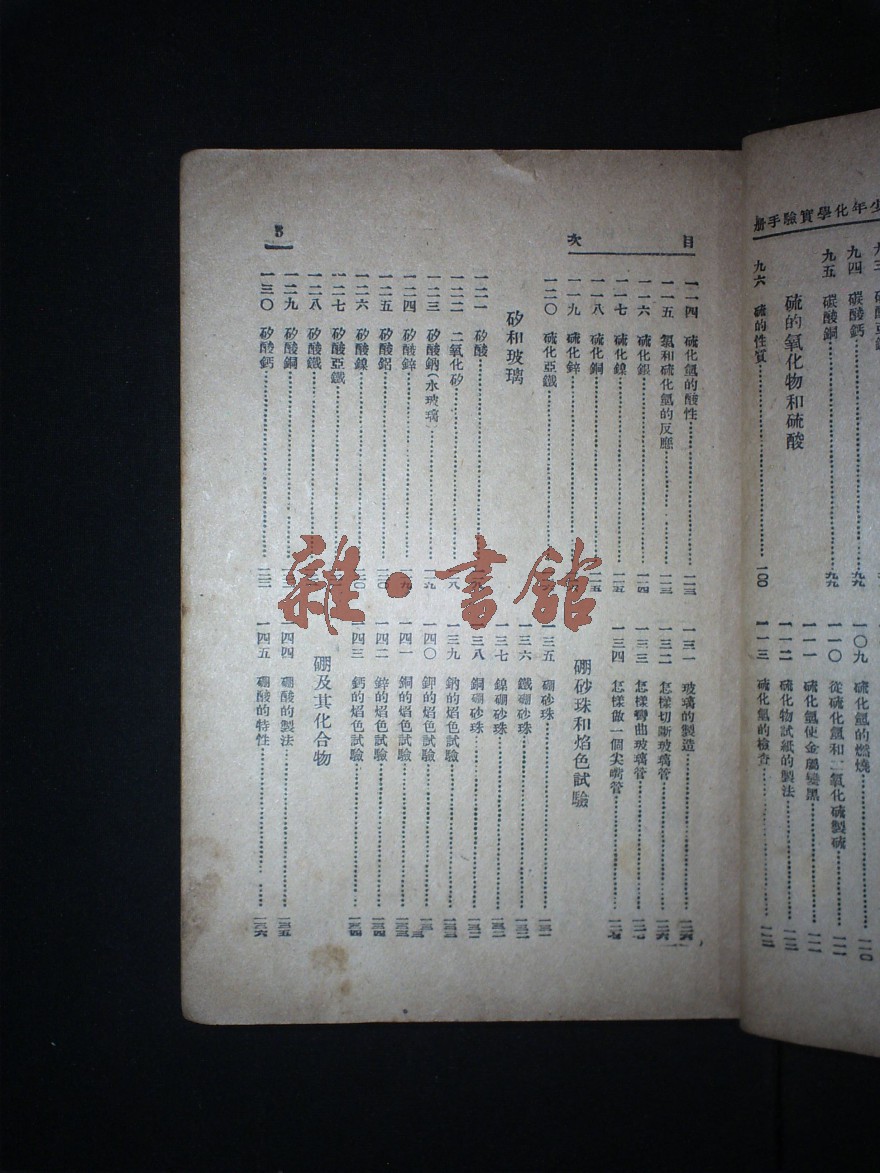 少年化學實驗手冊
九四 碳酸鈣 九九
九五 碳酸銅 九九
硫的氧化物和硫酸
九六 硫的性質 一〇〇
一〇九 硫化氫的燃燒 一一〇
一一〇 從硫化氫和二氧化硫製硫 一一一
一一一 硫化氫使金屬變黑 一一一
一一二 硫化物試紙的製法 一一二
一一三 硫化氫的檢查 一一二
目次
5
一一四 硫化氫的酸性 一一三
一一五 氯和硫化氫的反應 一一三
一一六 硫化銀 一一四
一一七 硫化鎳 一一五
一一八 硫化銅
一一九 硫化鋅
一二〇 硫化亞鐵
矽和玻璃
一二一 矽酸
一二二 二氧化矽
一二三 矽酸鈉(水玻璃)
一二四 矽酸鋅
一二五 矽酸鋁
一二六 矽酸鎳
一二七 矽酸亞鐵
一二八 矽酸鐵
一二九 矽酸銅
一三〇 矽酸鈣 一二二
一三一 玻璃的製造 一二六
一三二 怎樣切斷玻璃管 一二六
一三三 怎樣彎曲玻璃管 一二七
一三四 怎樣做一個尖嘴管 一二七
硼砂珠和焰色試驗
一三五 硼砂珠 一三一
一三六 鐵硼砂珠 一三二
一三七 鎳硼砂珠 一三二
一三八 銅硼砂珠 一三二
一三九 鈉的焰色試驗 一三三
一四〇 鉀的焰色試驗 一三三
一四一 銅的焰色試驗 一三三
一四二 鋅的焰色試驗 一三四
一四三 鈣的焰色試驗 一三四
硼及其化合物
一四四 硼酸的製法 一三五
一四五 硼酸的特性 一三六
雜·書館